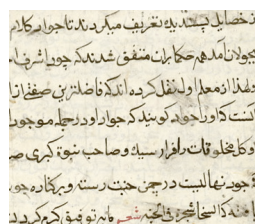 ز خصایل پسندیده تعریف میکردند تا جواز کلام
بجولان آمد همکنان متفق شدند که جود اشرف
و لهذا از معلم اول نقل کرده اند که فاضلترین صفتی از
آنست که او را جواد گویند که جود او در جمله موجودا
و کل مخلوقات را فرا رسیده و صاحب نبوة کبری
جود نهالیست در چمن جنت رسته و بر کناره جو
السخا شجرة فی الجنة شعر توفیق کرم کردند